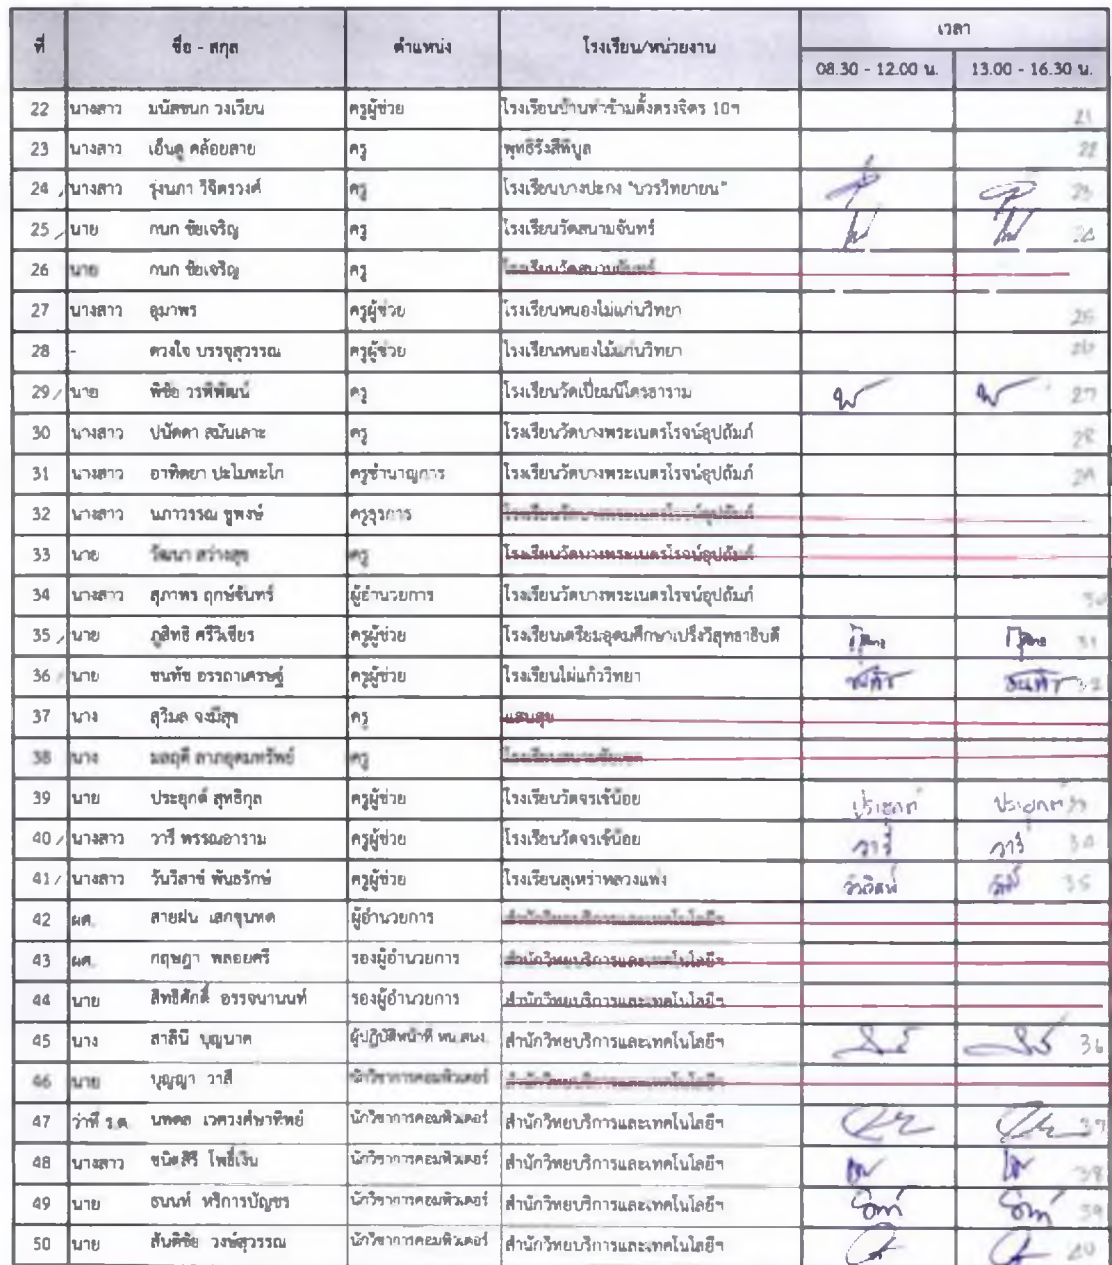 ที่ ชื่อ - สกุล ตำแหน่ง โรงเรียน/หน่วยงาน เวลา
08.30 - 12.00 น. 13.00 - 16.30 น.
22 นางสาว มนัสชนก วงเวียน ครูผู้ช่วย โรงเรียนบ้านท่าข้ามตั้งตรงจิตร 10ฯ 21
23 นางสาว เอ็นดู คล้อยสาย ครู พุทธิรังสีพิบูล 22
24 นางสาว รุ่งนภา วิจิตรวงศ์ ครู โรงเรียนบางปะกง "บวรวิทยายน" 23
25 นาย กนก ชัยเจริญ ครู โรงเรียนวัดสนามจันทร์ 24
26 นาย กนก ชัยเจริญ ครู โรงเรียนวัดสนามจันทร์
27 นางสาว อุมาพร ครูผู้ช่วย โรงเรียนหนองไม้แก่นวิทยา 25
28 - ดวงใจ บรรจุสุวรรณ ครูผู้ช่วย โรงเรียนหนองไม้แก่นวิทยา 26
29 นาย พิชัย วรพิพัฒน์ ครู โรงเรียนวัดเปี่ยมนิโครธาราม 27
30 นางสาว ปนัดดา สมันเลาะ ครู โรงเรียนวัดบางพระเนตรโรจน์อุปถัมภ์ 28
31 นางสาว อาทิตยา ปะไมทะโก ครูชำนาญการ โรงเรียนวัดบางพระเนตรโรจน์อุปถัมภ์ 29
32 นางสาว นภาวรรณ ชูพงษ์ ครูธุรการ โรงเรียนวัดบางพระเนตรโรจน์อุปถัมภ์
33 นาย วัฒนา สว่างสุข ครู โรงเรียนวัดบางพระเนตรโรจน์อุปถัมภ์
34 นางสาว สุภาพร ฤกษ์จันทร์ ผู้อำนวยการ โรงเรียนวัดบางพระเนตรโรจน์อุปถัมภ์ 30
35 นาย ภูสิทธิ ศรีวิเชียร ครูผู้ช่วย โรงเรียนเตรียมอุดมศึกษาเปร็งวิสุทธาธิบดี 31
36 นาย ชนทัช อรรถาเศรษฐ์ ครูผู้ช่วย โรงเรียนไผ่แก้ววิทยา 32
37 นาง สุวิมล จงมีสุข ครู แสนสุข
38 นาง มลฤดี ลาภอุดมทรัพย์ ครู โรงเรียนสนามชัยเขต
39 นาย ประยุกต์ สุทธิกุล ครูผู้ช่วย โรงเรียนวัดจรเข้น้อย ประยุกต์ ประยุกต์ 33
40 นางสาว วารี พรรณอาราม ครูผู้ช่วย โรงเรียนวัดจรเข้น้อย วารี วารี 34
41 นางสาว วันวิสาข์ พันธรักษ์ ครูผู้ช่วย โรงเรียนสุเหร่าหลวงแพ่ง 35
42 ผศ. สายฝน เสกขุนทด ผู้อำนวยการ สำนักวิทยบริการและเทคโนโลยีฯ
43 ผศ. กฤษฎา พลอยศรี รองผู้อำนวยการ สำนักวิทยบริการและเทคโนโลยีฯ
44 นาย สิทธิศักดิ์ อรรจนานนท์ รองผู้อำนวยการ สำนักวิทยบริการและเทคโนโลยีฯ
45 นาง สาลินี บุญนาค ผู้ปฏิบัติหน้าที่ หน.สนง. สำนักวิทยบริการและเทคโนโลยีฯ 36
46 นาย บุญญา วาสี นักวิชาการคอมพิวเตอร์ สำนักวิทยบริการและเทคโนโลยีฯ
47 ว่าที่ ร.ต. นพดล เวศวงศ์ษาทิพย์ นักวิชาการคอมพิวเตอร์ สำนักวิทยบริการและเทคโนโลยีฯ 37
48 นางสาว ขนิตสิรี โพธิ์เงิน นักวิชาการคอมพิวเตอร์ สำนักวิทยบริการและเทคโนโลยีฯ 38
49 นาย ธนนท์ ทริการบัญชร นักวิชาการคอมพิวเตอร์ สำนักวิทยบริการและเทคโนโลยีฯ 39
50 นาย สันติชัย วงษ์สุวรรณ นักวิชาการคอมพิวเตอร์ สำนักวิทยบริการและเทคโนโลยีฯ 40